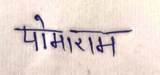 पोमाराम